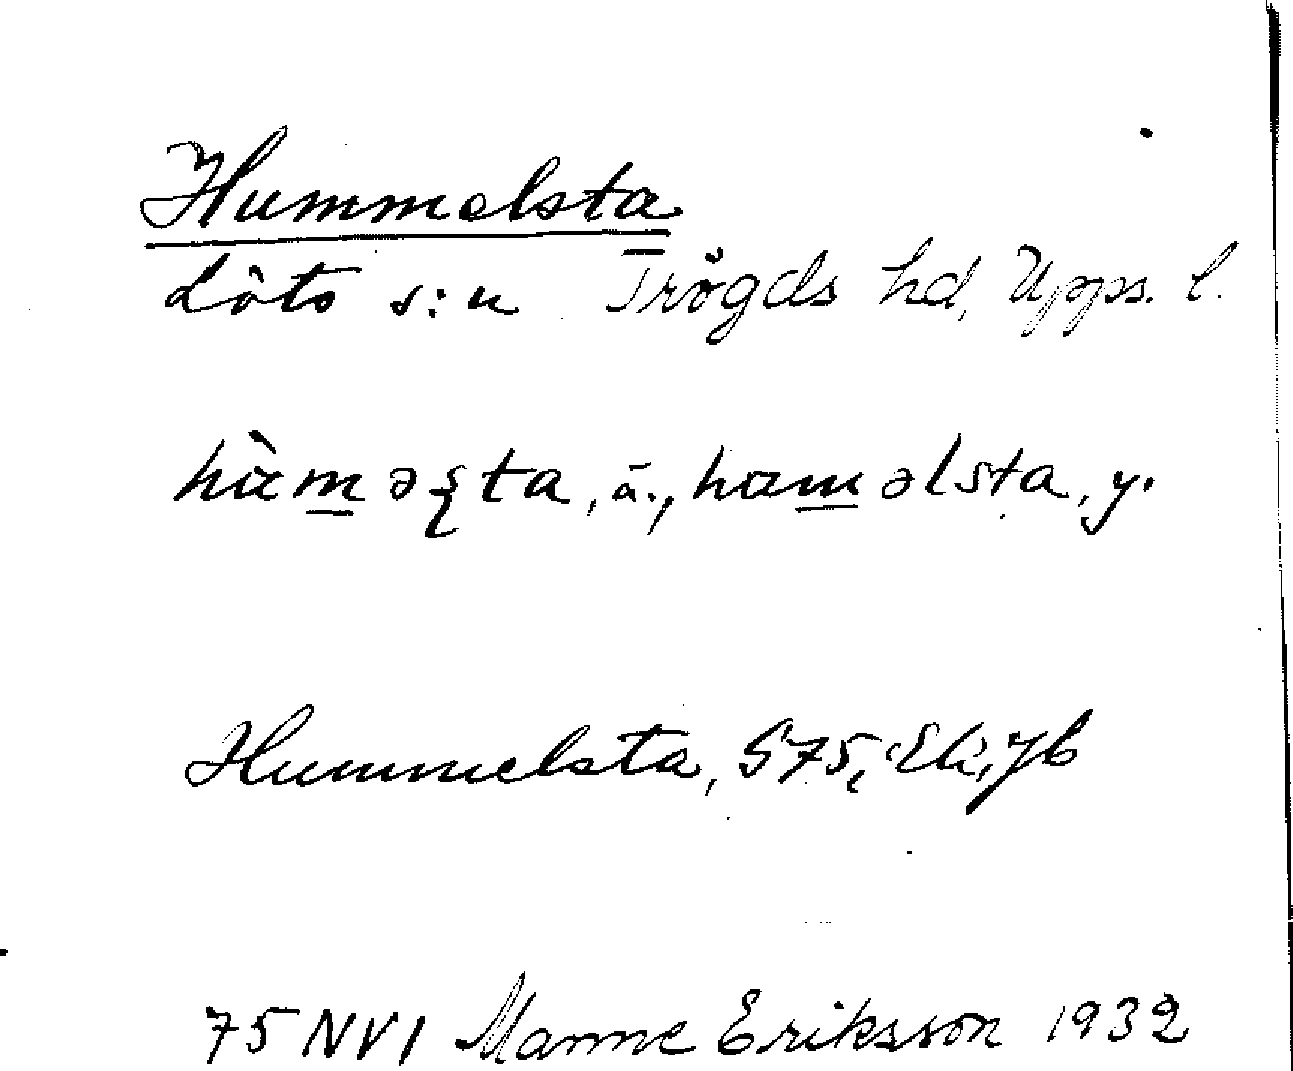 Hummelsta
Löts s:n Trögds hd, Upps. l.
hùməʂta, ä., huməlsta, y.
Hummelsta, S75, Ek, Jb
75 NV1 Manne Eriksson 1932